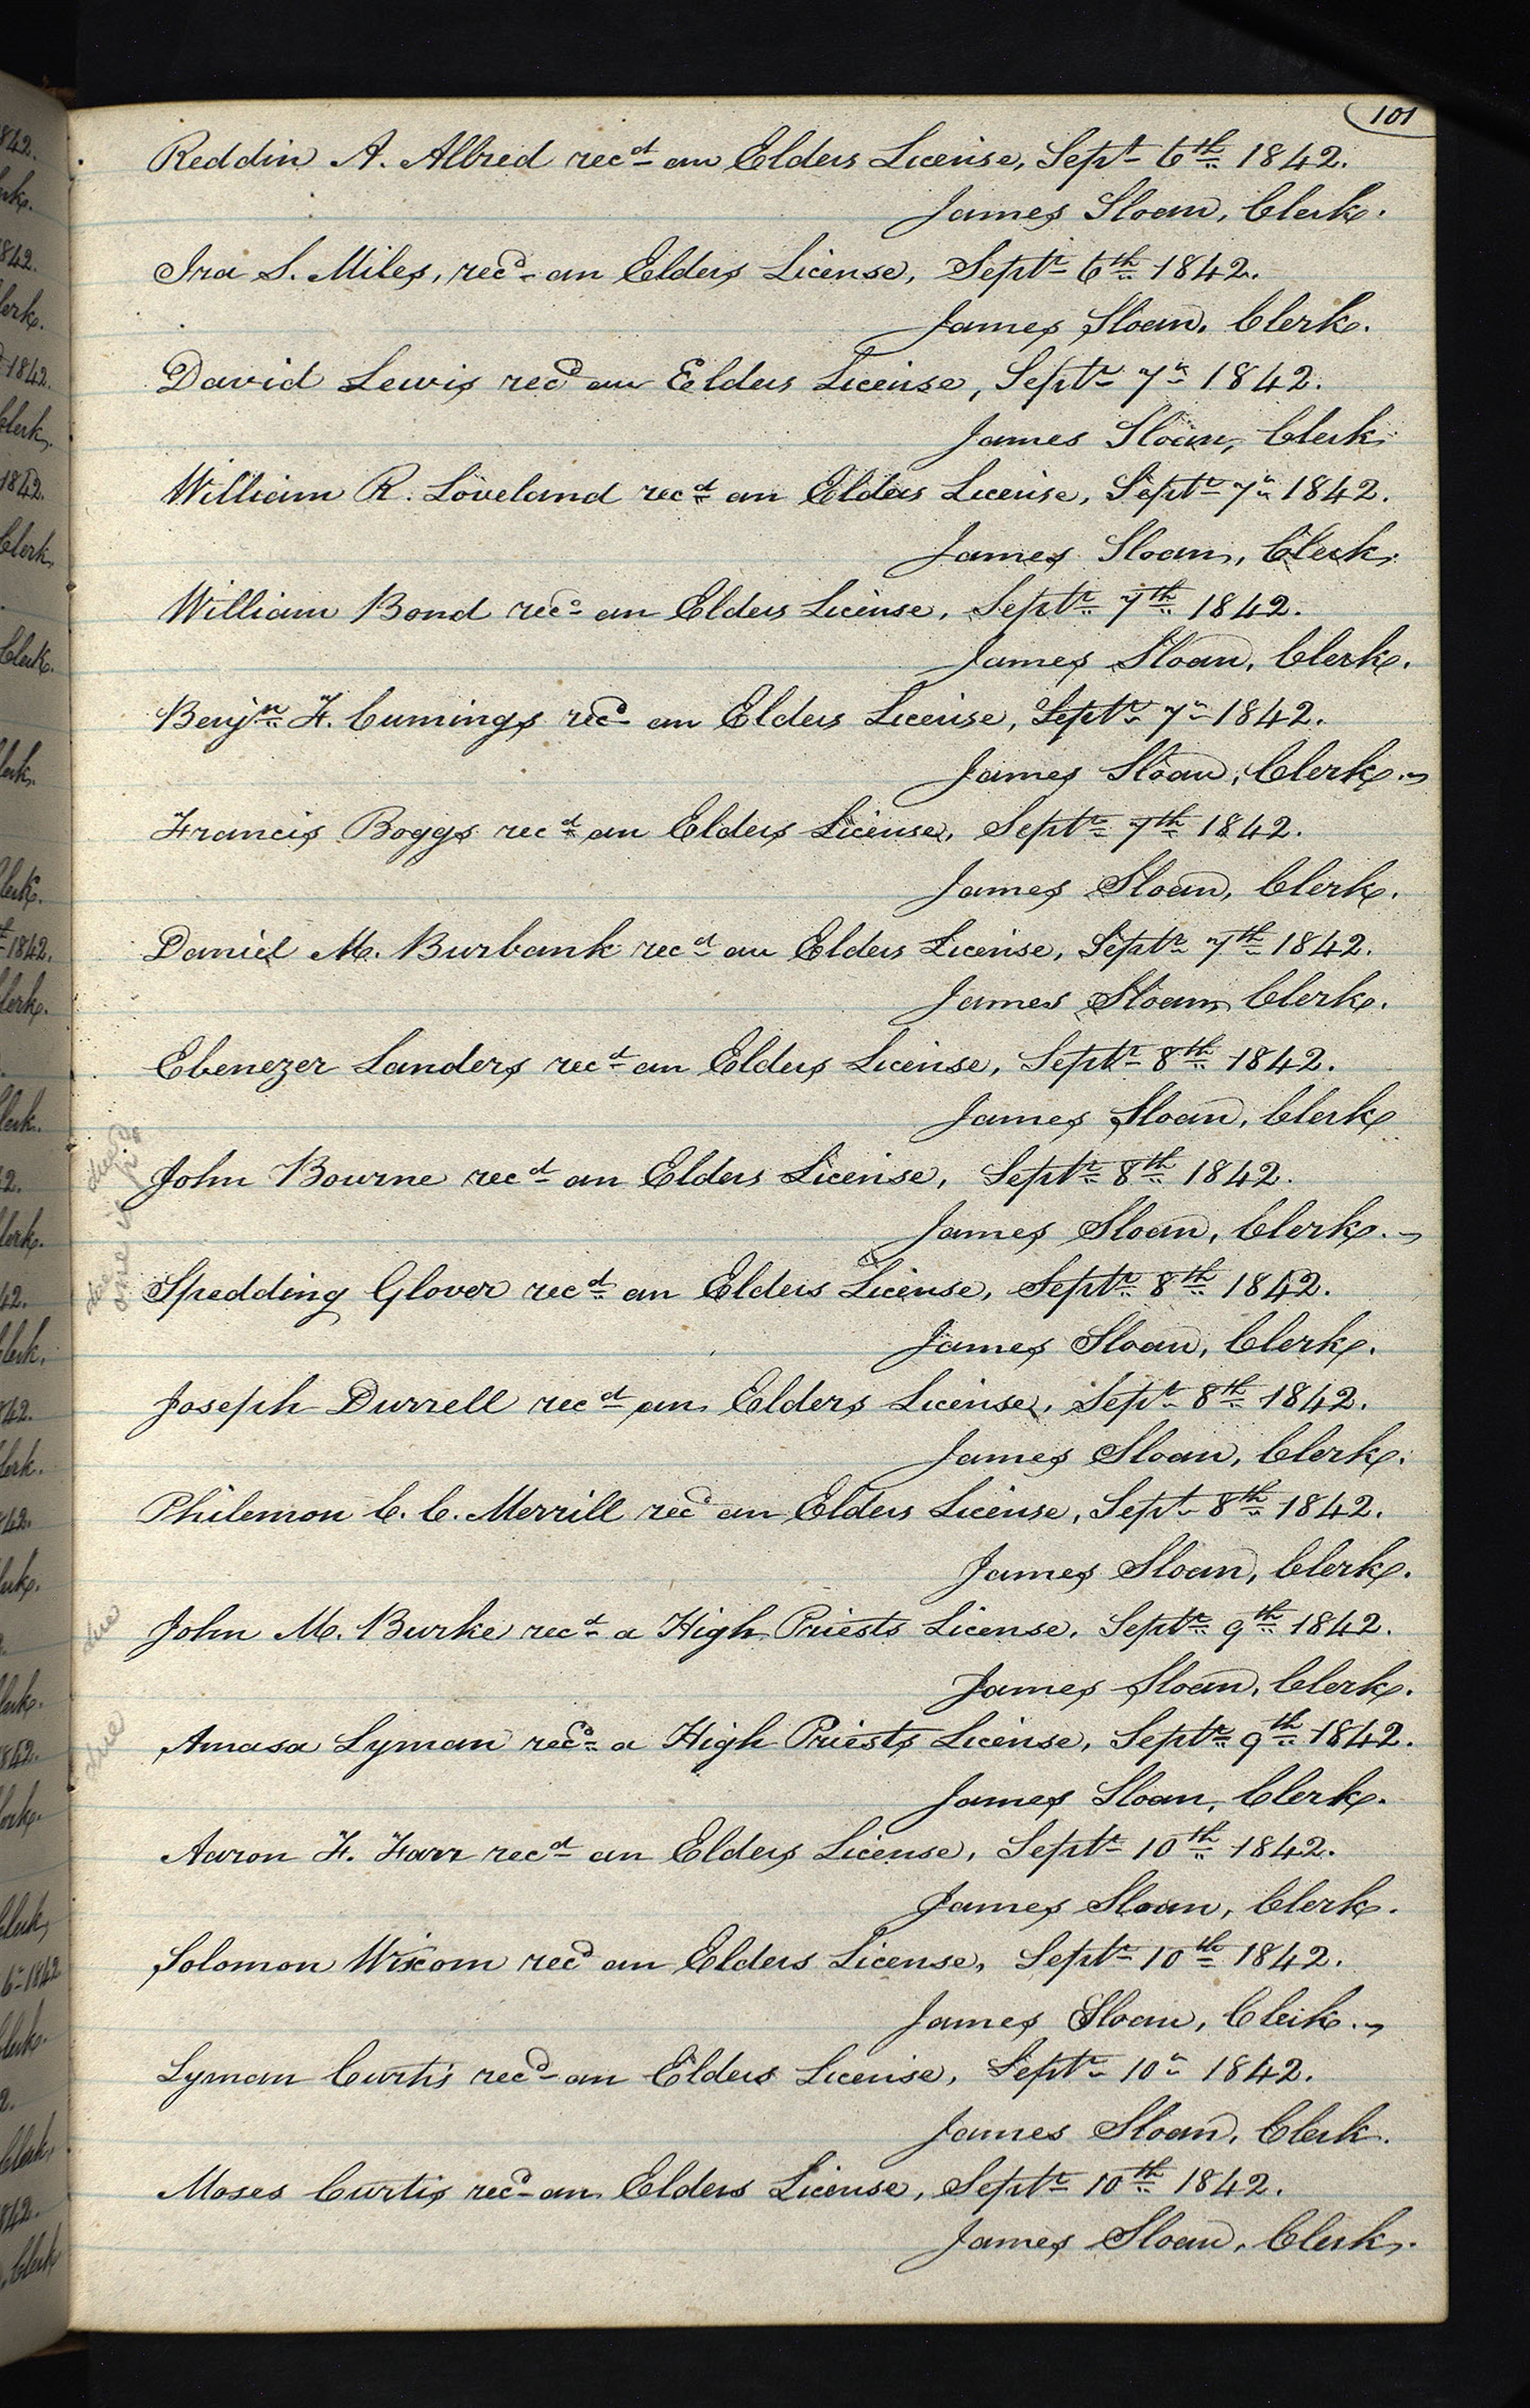 101
Reddin A. Allred recd an Elders License, Sept 6th 1842.
James Sloan, Clerk.
Ira S. Miles, recd an Elders License, Septr 6th 1842.
James Sloan, Clerk.
David Lewis recd an Elders License, Septr 7th 1842.
James Sloan, Clerk.
William R. Loveland recd an Elders License, Septr 7th 1842.
James Sloan, Clerk.
William Bond recd an Elders License, Septr 7th 1842.
James Sloan, Clerk.
Benjn F. Cumings recd an Elders License, Septr 7th 1842.
James Sloan, Clerk.
Francis Boggs recd an Elders License, Septr 7th 1842.
James Sloan, Clerk.
Daniel M. Burbank recd an Elders License, Septr 7th 1842.
James Sloan, Clerk.
Ebenezer Landers recd an Elders License, Septr 8th 1842.
James Sloan, Clerk
John Bourne recd an Elders License, Septr 8th 1842.
James Sloan, Clerk.
Spedding Glover recd an Elders License, Septr 8th 1842.
James Sloan, Clerk.
Joseph Durrell recd an Elders License, Septr 8th 1842.
James Sloan, Clerk.
Philemon C. C. Merrill recd an Elders License, Sept 8th 1842.
James Sloan, Clerk.
due
John M. Burke recd a High Priests License, Septr 9th 1842.
James Sloan, Clerk.
due
Amasa Lyman recd a High Priests License, Septr 9th 1842.
James Sloan, Clerk.
Aaron F. Farr recd an Elders License, Septr 10th 1842.
James Sloan, Clerk.
Solomon Wixom recd an Elders License, Septr 10th 1842.
James Sloan, Clerk.
Lyman Curtis recd an Elders License, Septr 10th 1842.
James Sloan, Clerk.
Moses Curtis recd an Elders License, Septr 10th 1842.
James Sloan, Clerk.